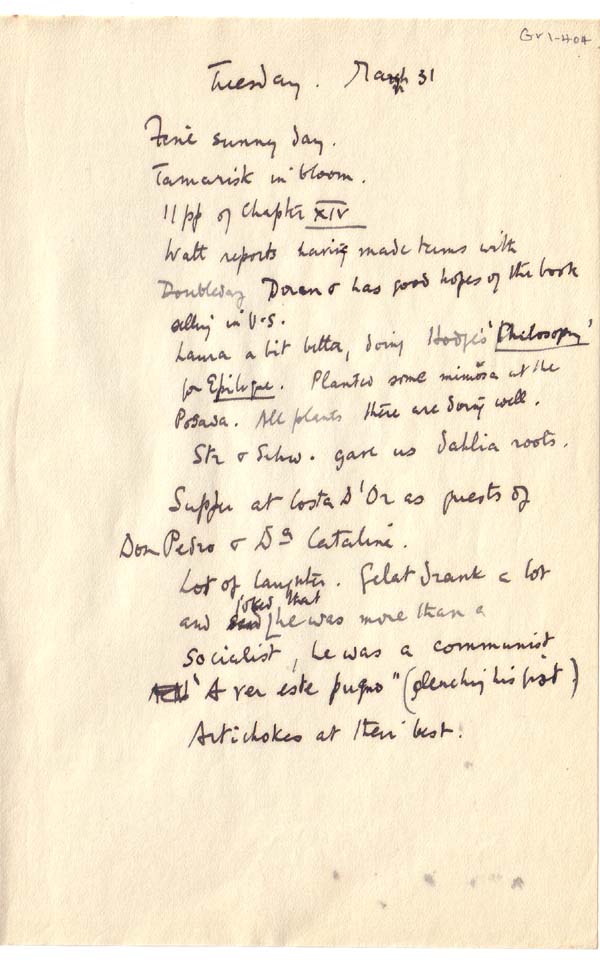 GV1-404
Tuesday. March 31
Fine sunny day.
Tamarisk in bloom.
11 pp of Chapter XIV
Watt reports having made terms with
Doubleday Doran & has good hopes of the book
selling in U.S.
Laura a bit better, doing Hodge's 'Philosophy'
for Epilogue. Planted some mimosa at the
Posada. All plants there are doing well.
Str & Schw. gave us dahlia roots.
Supper at Costa D'Or as guests of
Don Pedro & Dª Catalina.
Lot of laughter. Gelat drank a lot
joked that
and he was more than a
socialist, he was a communist
'A ver este pugno" (clenching his fist)
Artichokes at their best.